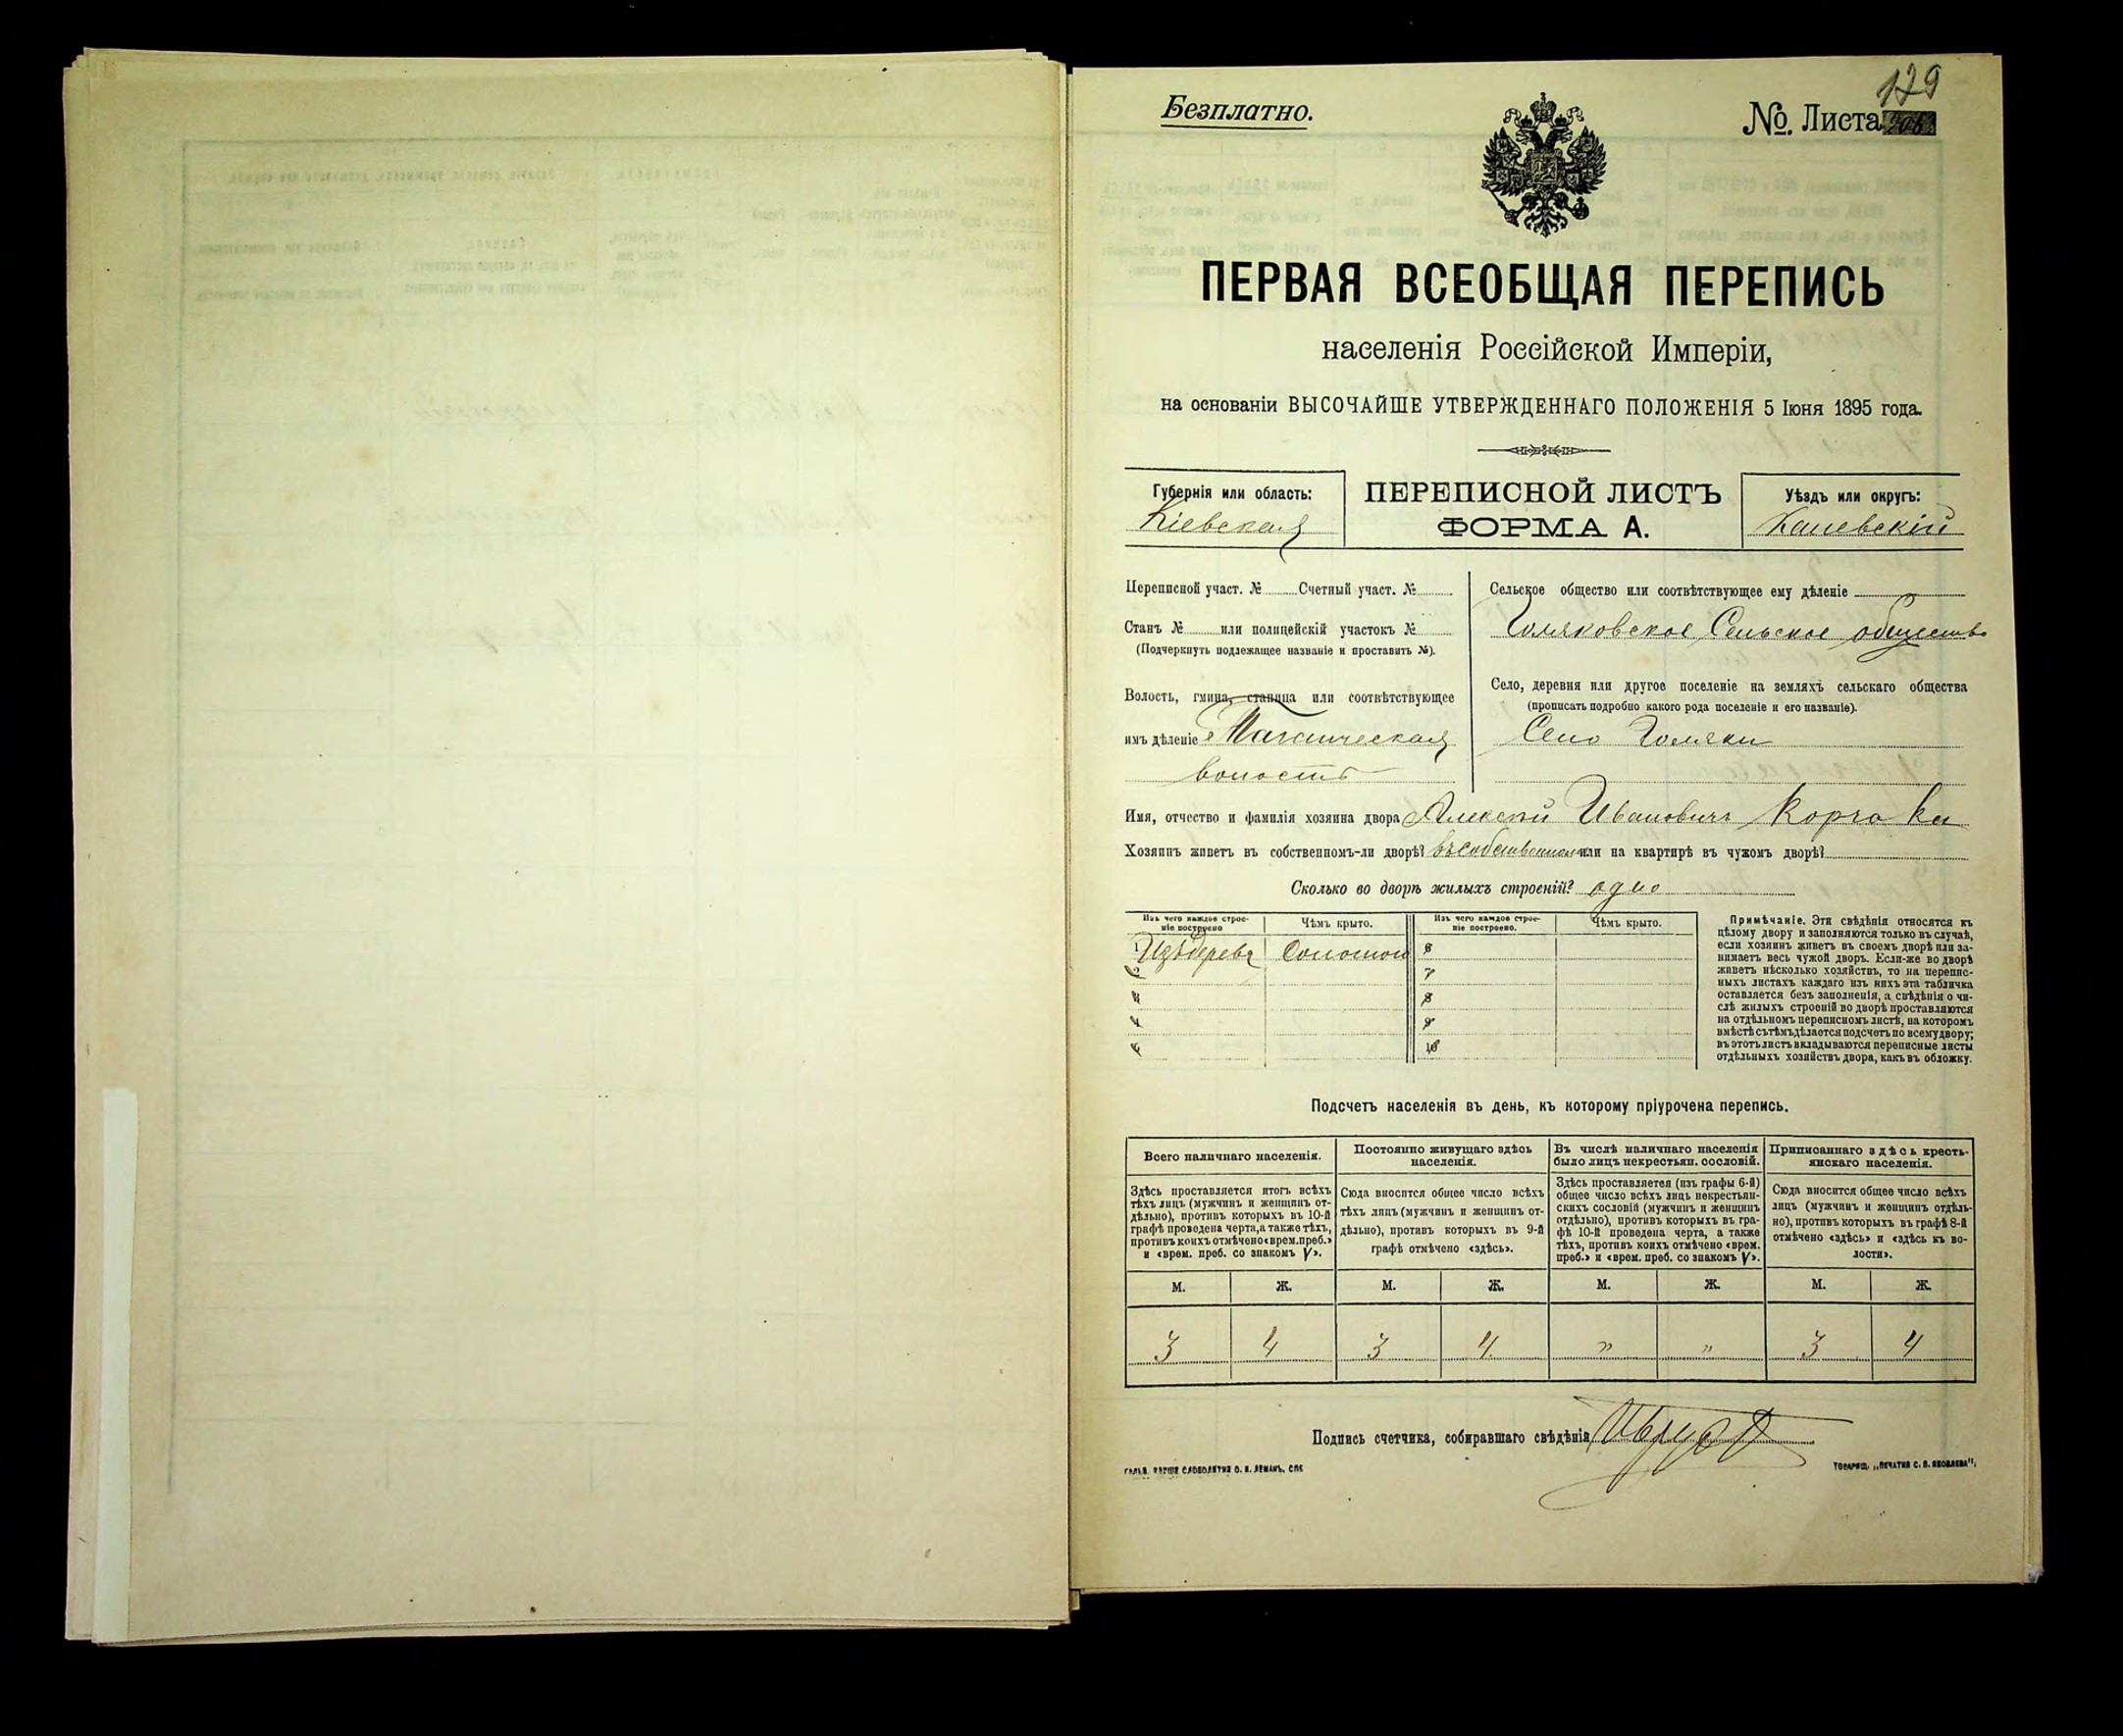 129
Безплатно.
№. Листа
ПЕРВАЯ ВСЕОБЩАЯ ПЕРЕПИСЬ
населенія Россійской Имперіи,
на основаніи ВЫСОЧАЙШЕ УТВЕРЖДЕННАГО ПОЛОЖЕНІЯ 5 Іюня 1895 года.
Губернія или область:
Кіевская
ПЕРЕПИСНОЙ ЛИСТЪ
ФОРМА А.
Уѣздъ или округъ:
Каневскій
Переписной участ. № Счетный участ. №
Станъ № или полицейскій участокъ №
(Подчеркнуть подлежащее названіе и проставить №).
Волость, гмина, станица или соотвѣтствующее
имъ дѣленіе
волость
Сельское общество или соотвѣтствующее ему дѣленіе
Сельское общество
Село, деревня или другое поселеніе на земляхъ сельскаго общества
(прописать подробно какого рода поселеніе и его названіе).
Село
Имя, отчество и фамилія хозяина двора Алексѣй Ивановичъ Корчака
Хозяинъ живетъ въ собственномъ-ли дворѣ? въ собственномъ или на квартирѣ въ чужомъ дворѣ?
Сколько во дворѣ жилыхъ строеній? одно
Изъ чего каждое строе-
ніе построено
Чѣмъ крыто.
Изъ чего каждое строе-
ніе построено.
Чѣмъ крыто.
1 Изъ дерева Соломою 6
2 7
3 8
4 9
5 10
Примѣчаніе. Эти свѣдѣнія относятся къ
цѣлому двору и заполняются только въ случаѣ,
если хозяинъ живетъ въ своемъ дворѣ или за-
нимаетъ весь чужой дворъ. Если-же во дворѣ
живетъ нѣсколько хозяйствъ, то на перепис-
ныхъ листахъ каждаго изъ нихъ эта табличка
оставляется безъ заполненія, а свѣдѣнія о чи-
слѣ жилыхъ строеній во дворѣ проставляются
на отдѣльномъ переписномъ листѣ, на которомъ
вмѣстѣ съ тѣмъ дѣлается подсчетъ по всему двору;
въ этотъ листъ вкладываются переписные листы
отдѣльныхъ хозяйствъ двора, какъ въ обложку.
Подсчетъ населенія въ день, къ которому пріурочена перепись.
Всего наличнаго населенія.
Здѣсь проставляется итогъ всѣхъ
тѣхъ лицъ (мужчинъ и женщинъ от-
дѣльно), противъ которыхъ въ 10-й
графѣ проведена черта, а также тѣхъ,
противъ коихъ отмѣчено «врем. преб.»
и «врем. преб. со знакомъ V».
Постоянно живущаго здѣсь
населенія.
Сюда вносится общее число всѣхъ
тѣхъ лицъ (мужчинъ и женщинъ от-
дѣльно), противъ которыхъ въ 9-й
графѣ отмѣчено «здѣсь».
Въ числѣ наличнаго населенія
было лицъ некрестьян. сословій.
Здѣсь проставляется (изъ графы 6-й)
общее число всѣхъ лицъ некрестьян-
скихъ сословій (мужчинъ и женщинъ
отдѣльно), противъ которыхъ въ гра-
фѣ 10-й проведена черта, а также
тѣхъ, противъ коихъ отмѣчено «врем.
преб.» и «врем. преб. со знакомъ V».
Приписаннаго здѣсь кресть-
янскаго населенія.
Сюда вносится общее число всѣхъ
лицъ (мужчинъ и женщинъ отдѣль-
но), противъ которыхъ въ графѣ 8-й
отмѣчено «здѣсь» и «здѣсь къ во-
лости».
М. Ж. М. Ж. М. Ж. М. Ж.
3 4 3 4 „ „ 3 4
Подпись счетчика, собиравшаго свѣдѣнія
ТОВАРИЩ. „ПЕЧАТНЯ С. П. ЯКОВЛЕВА",